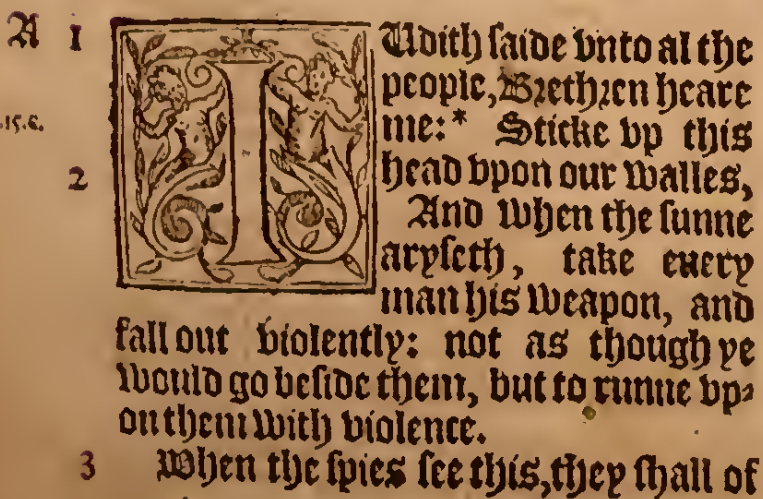 A 1 IUdith saide vnto al the
people, Brethren heare
.15.6. me:* Sticke vp this
2 head vpon our walles,
And when the sunne
aryseth, take euery
man his weapon, and
fall out violently: not as though ye
would go beside them, but to runne vp-
on them with violence.
3 When the spies see this, they shall of